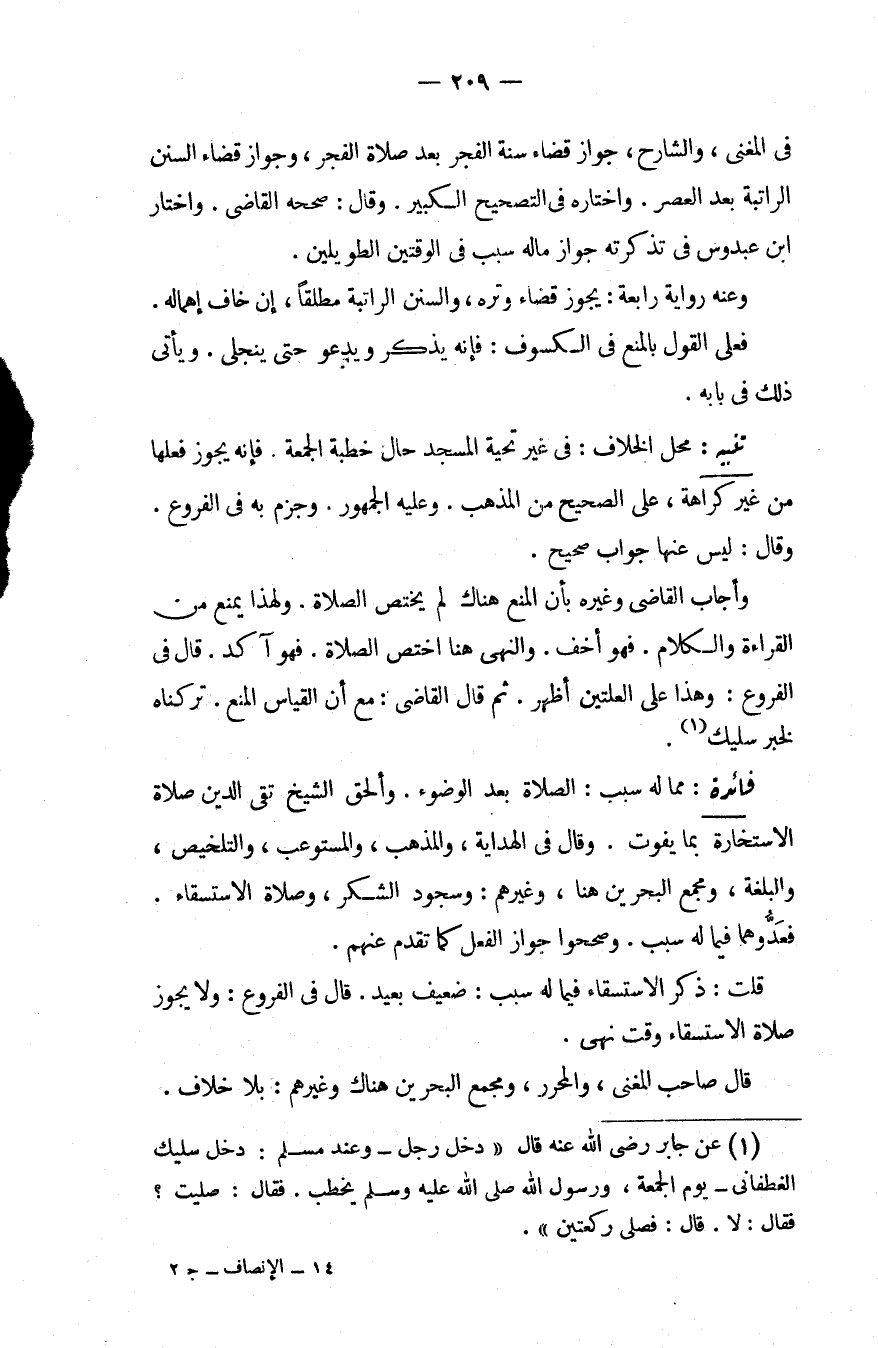 — ٢٠٩ —
فى المغنى ، والشارح ، جواز قضاء سنة الفجر بعد صلاة الفجر ، وجواز قضاء السنن
الراتبة بعد العصر . واختاره فى التصحيح الكبير . وقال : صححه القاضى . واختار
ابن عبدوس فى تذكرته جواز ماله سبب فى الوقتين الطويلين .
وعنه رواية رابعة : يجوز قضاء وتره ، والسنن الراتبة مطلقاً ، إن خاف إهماله .
فعلى القول بالمنع فى الكسوف : فإنه يذكر ويدعو حتى ينجلى . ويأتى
ذلك فى بابه .
تنبيه : محل الخلاف : فى غير تحية المسجد حال خطبة الجمعة . فإنه يجوز فعلها
من غير كراهة ، على الصحيح من المذهب . وعليه الجمهور . وجزم به فى الفروع .
وقال : ليس عنها جواب صحيح .
وأجاب القاضى وغيره بأن المنع هناك لم يختص الصلاة . ولهذا يمنع من
القراءة والكلام . فهو أخف . والنهى هنا اختص الصلاة . فهو آكد . قال فى
الفروع : وهذا على العلتين أظهر . ثم قال القاضى : مع أن القياس المنع . تركناه
لخبر سليك(١) .
فائدة : مما له سبب : الصلاة بعد الوضوء . وألحق الشيخ تقى الدين صلاة
الاستخارة بما يفوت . وقال فى الهداية ، والمذهب ، والمستوعب ، والتلخيص ،
والبلغة ، ومجمع البحرين هنا ، وغيرهم : وسجود الشكر ، وصلاة الاستسقاء .
فعَدُّوهما فيما له سبب . وصححوا جواز الفعل كما تقدم عنهم .
قلت : ذكر الاستسقاء فيما له سبب : ضعيف بعيد . قال فى الفروع : ولا يجوز
صلاة الاستسقاء وقت نهى .
قال صاحب المغنى ، والمحرر ، ومجمع البحرين هناك وغيرهم : بلا خلاف .
(١) عن جابر رضى الله عنه قال « دخل رجل ـ وعند مسلم : دخل سليك
الغطفانى ـ يوم الجمعة ، ورسول الله صلى الله عليه وسلم يخطب . فقال : صليت ؟
فقال : لا . قال : فصلى ركعتين » .
١٤ ـ الإنصاف ـ ج ٢